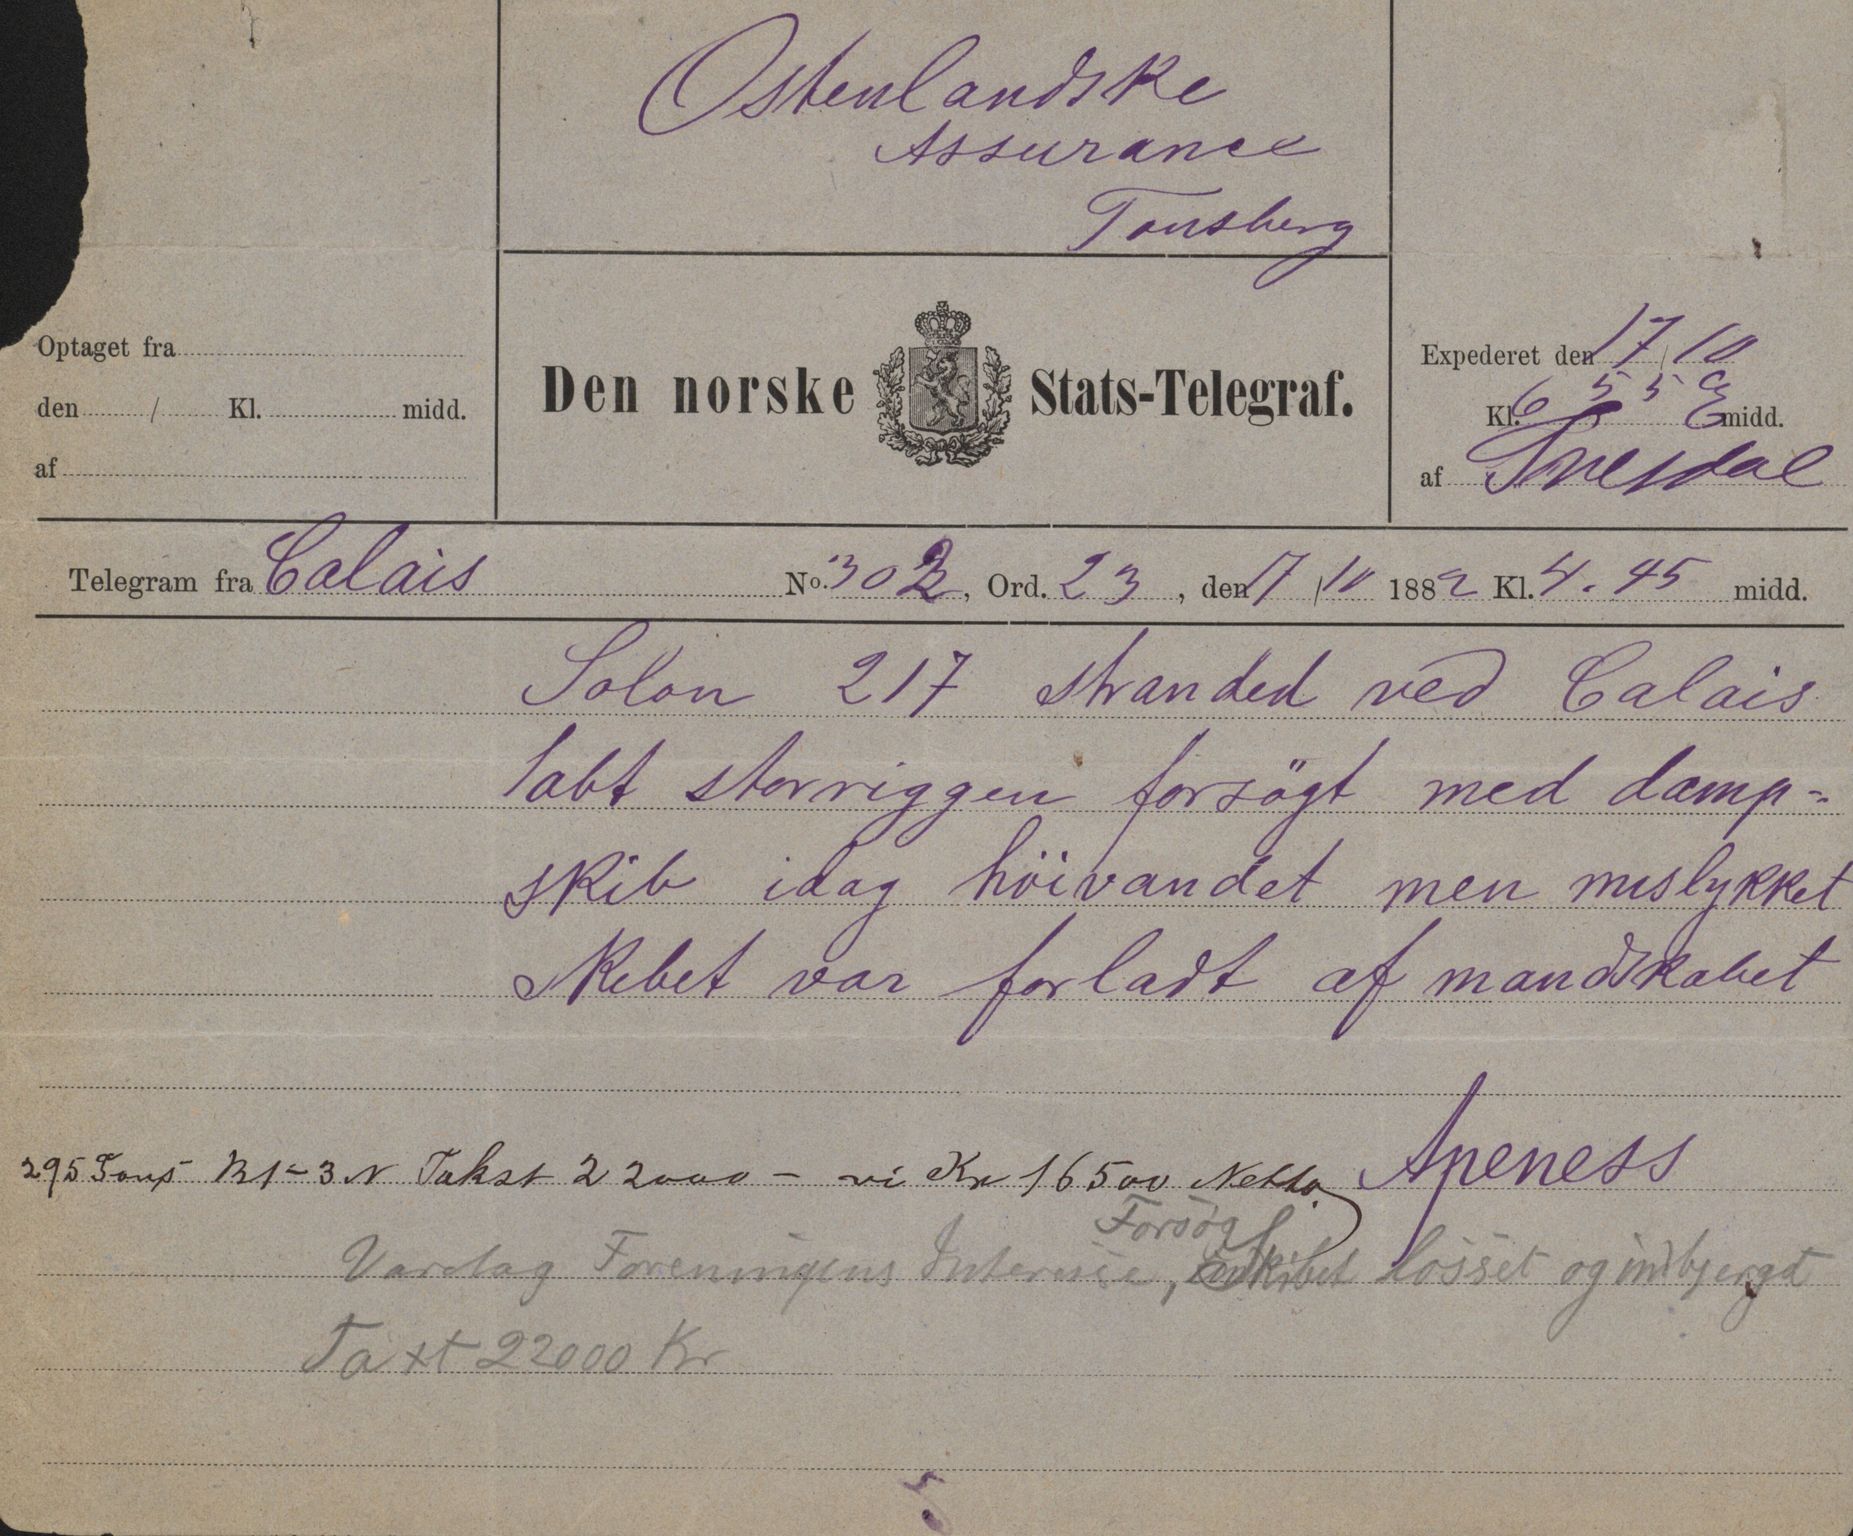 Ostenlandske
Assurance
Tonsberg
Optaget fra
den / Kl. midd.
af
Den norske Stats-Telegraf.
Expederet den 17/10
Kl. 6 55 E midd.
af
Telegram fra Calais No. 302, Ord. 23, den 17/10 1882 Kl. 4.45 midd.
Solon 217 stranded ved Calais
tabt storriggen forsögt med damp-
skib idag höivandet men mislykket
skibet var forladt af mandskabet
Apeness
295 Tons B1-3N Takst 22000 - vi Kr 16500 Netto
Forsøg
Varetag Foreningens Interesse, skibet losset og indbjerget
Taxt 22000 Kr